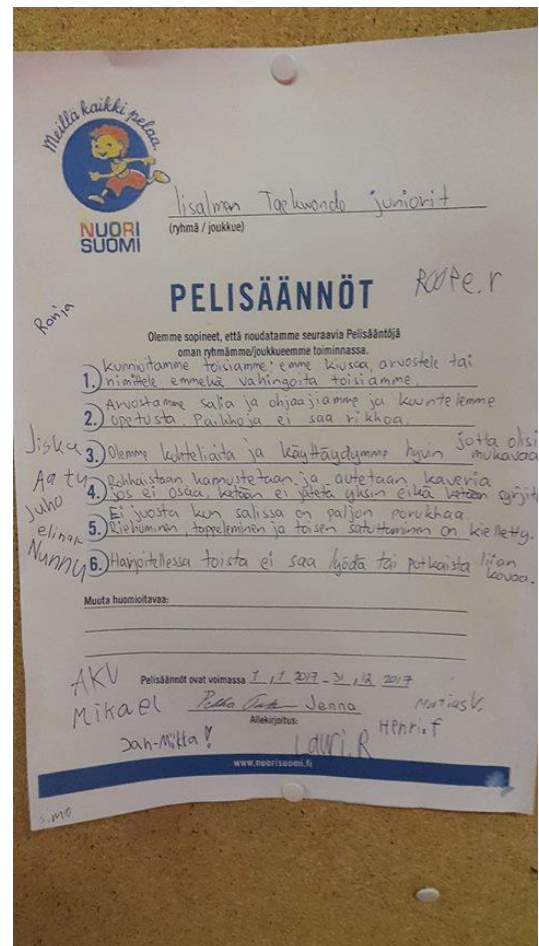 Meillä kaikki pelaa
NUORI
SUOMI
Iisalmen Taekwondo juniorit
(ryhmä / joukkue)
ROOPE.r
Ronja
PELISÄÄNNÖT
Olemme sopineet, että noudatamme seuraavia Pelisääntöjä
oman ryhmämme/joukkueemme toiminnassa.
Kunnioitamme toisiamme; emme kiusaa, arvostele tai
1. nimittele emmekä vahingoita toisiamme.
Arvostamme salia ja ohjaajiamme ja kuuntelemme
2. opetusta. Paikkoja ei saa rikkoa.
Jiska
3. Olemme kohteliaita ja käyttäydymme hyvin jotta olisi
mukavaa
Aatu
Rohkaistaan kannustetaan ja autetaan kaveria
4. jos ei osaa, ketään ei jätetä yksin eikä ketään syrjitä
Juho
Ei juosta kun salissa on paljon porukkaa.
5. Riehuminen, tappeleminen ja toisen satuttaminen on kielletty.
elinak
Nunny
6. Harjoitellessa toista ei saa lyödä tai potkaista liian
kovaa.
Muuta huomioitavaa:
AKV
Pelisäännöt ovat voimassa 1.1 2017 - 31.12 2017
Mikael
Pekka
Jenna
Matias V.
Allekirjoitus:
Henri.f
Jan-Mikka!
Lauri.R
www.nuorisuomi.fi
s.mo